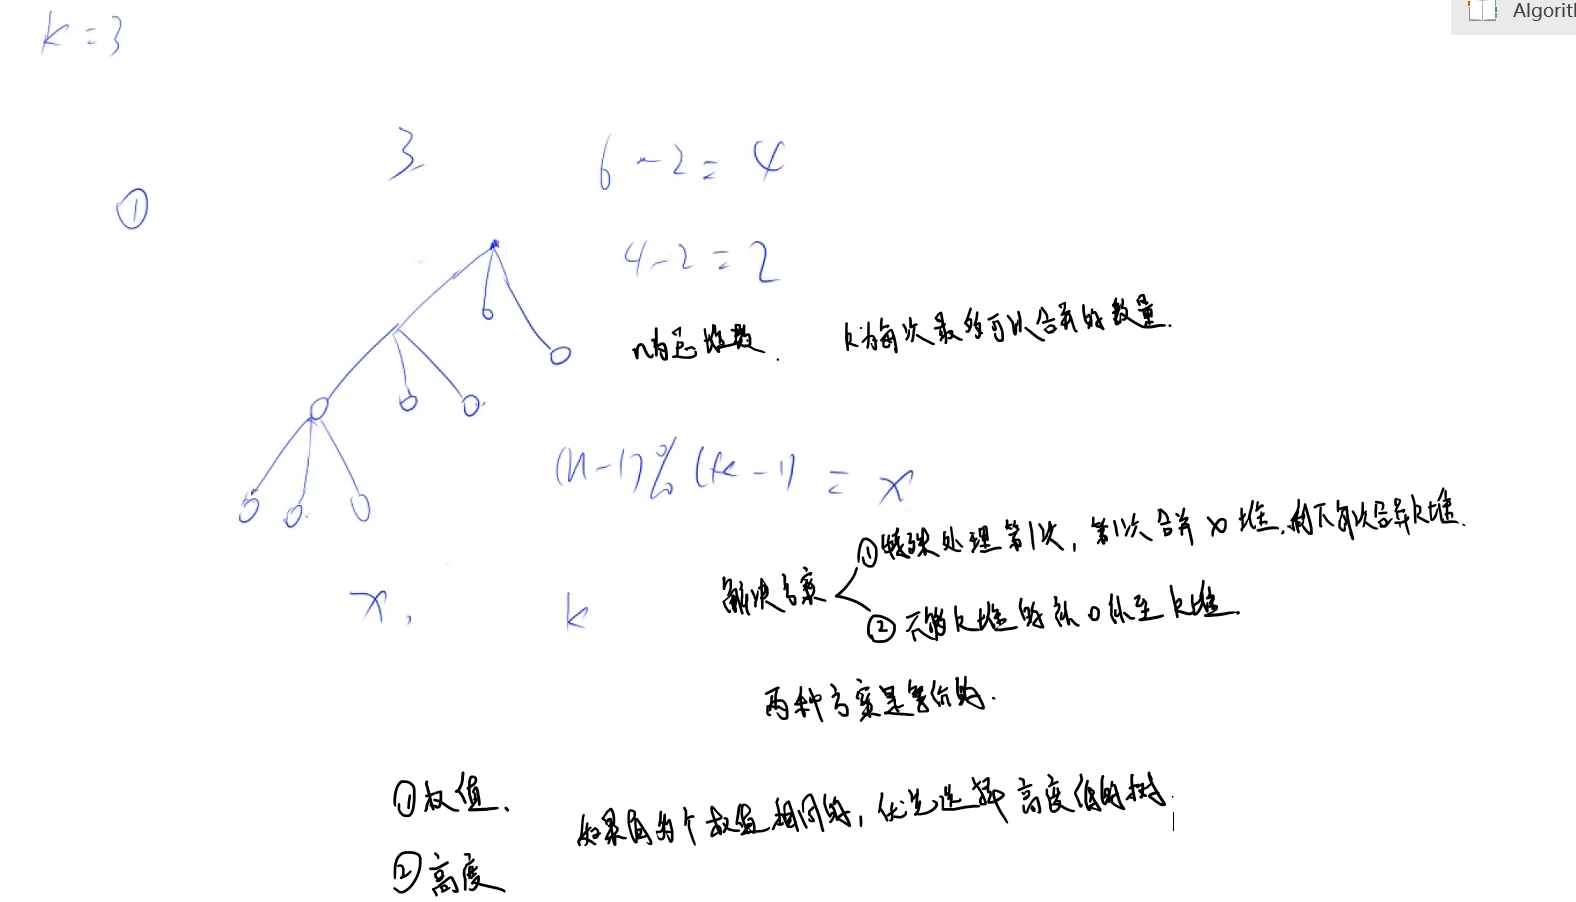 Algorit
k = 3
3
6 - 2 = 4
①
4 - 2 = 2
n为总堆数. k为每次最多可以合并的数量.
(n-1)%(k-1) = x
①特殊处理第1次,第1次合并x堆,剩下每次合并k堆.
解决方案
x, k
②不够k堆的补0补至k堆.
两种方案是等价的.
①权值.
如果有多个权值相同的,优先选择高度低的树.
②高度